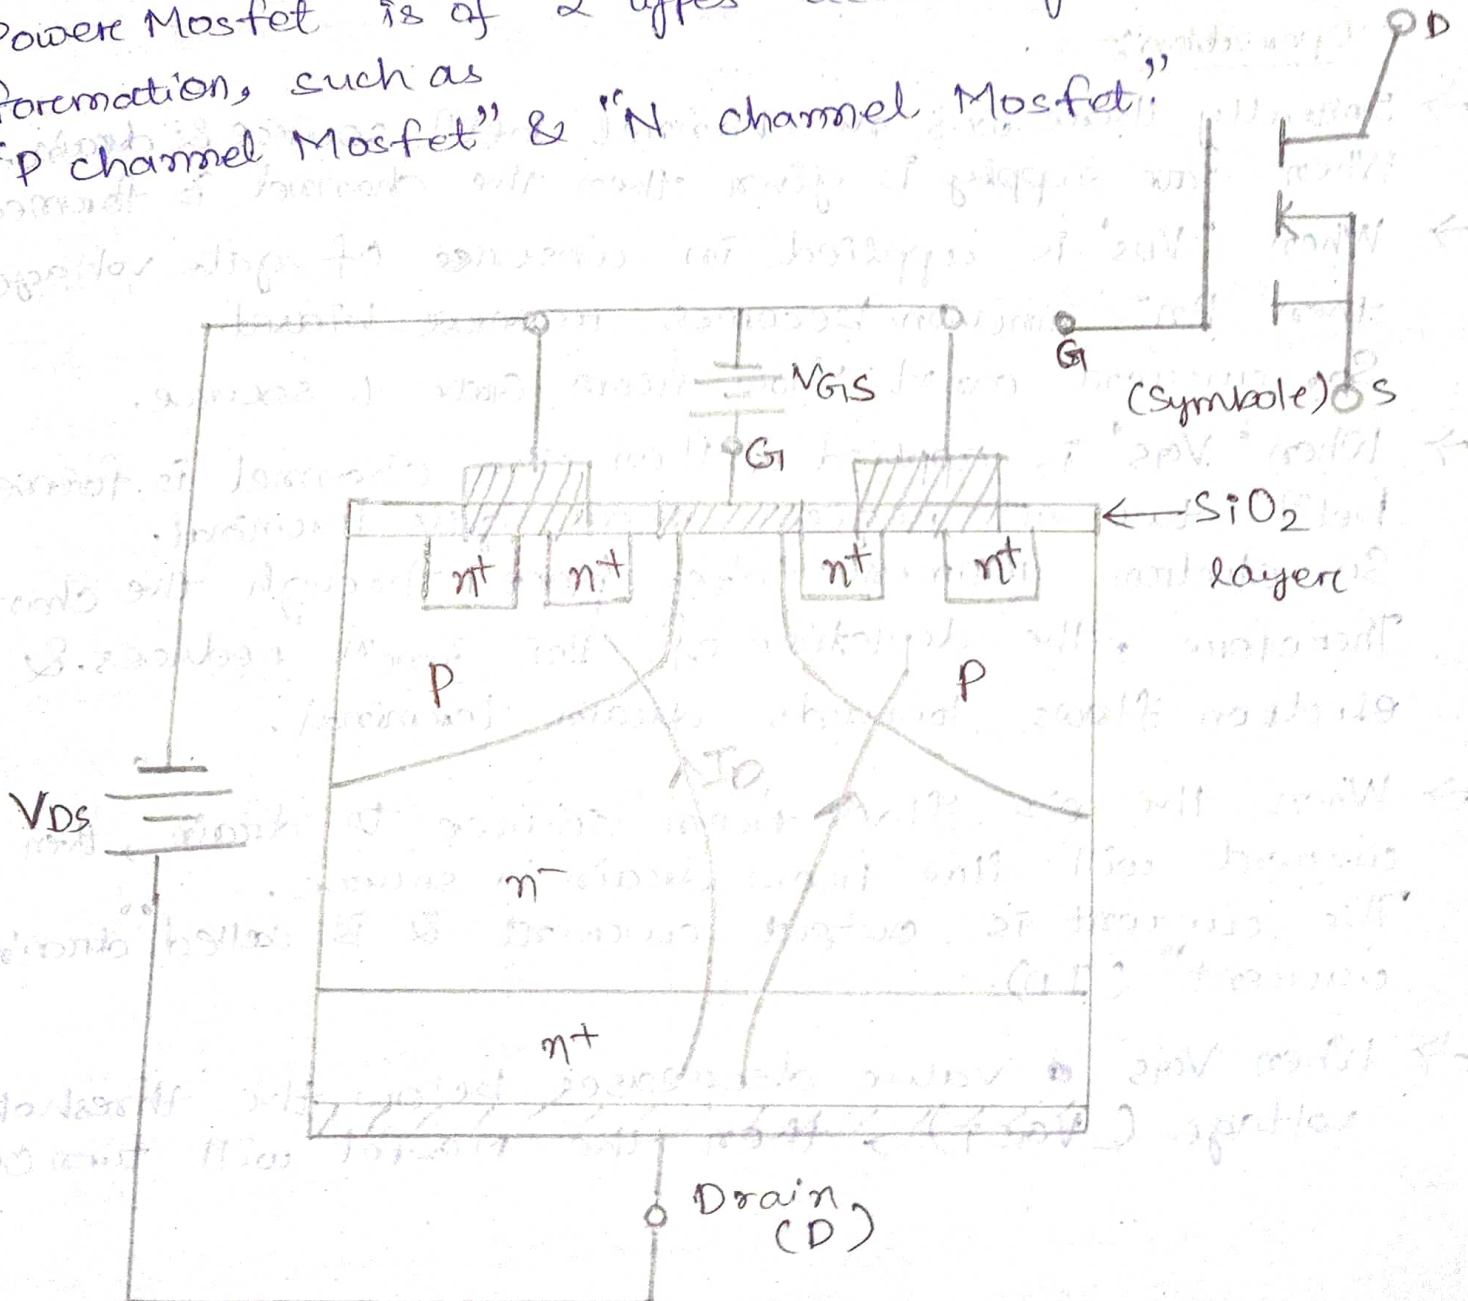 Powere Mosfet is of 2 types
foremation, such as
"P channel Mosfet" & "N channel Mosfet."
D
G
(Symbole) S
VGS
G
SiO2
layere
n+ n+ n+ n+
P P
ID
VDS
n-
n+
Drain
(D)